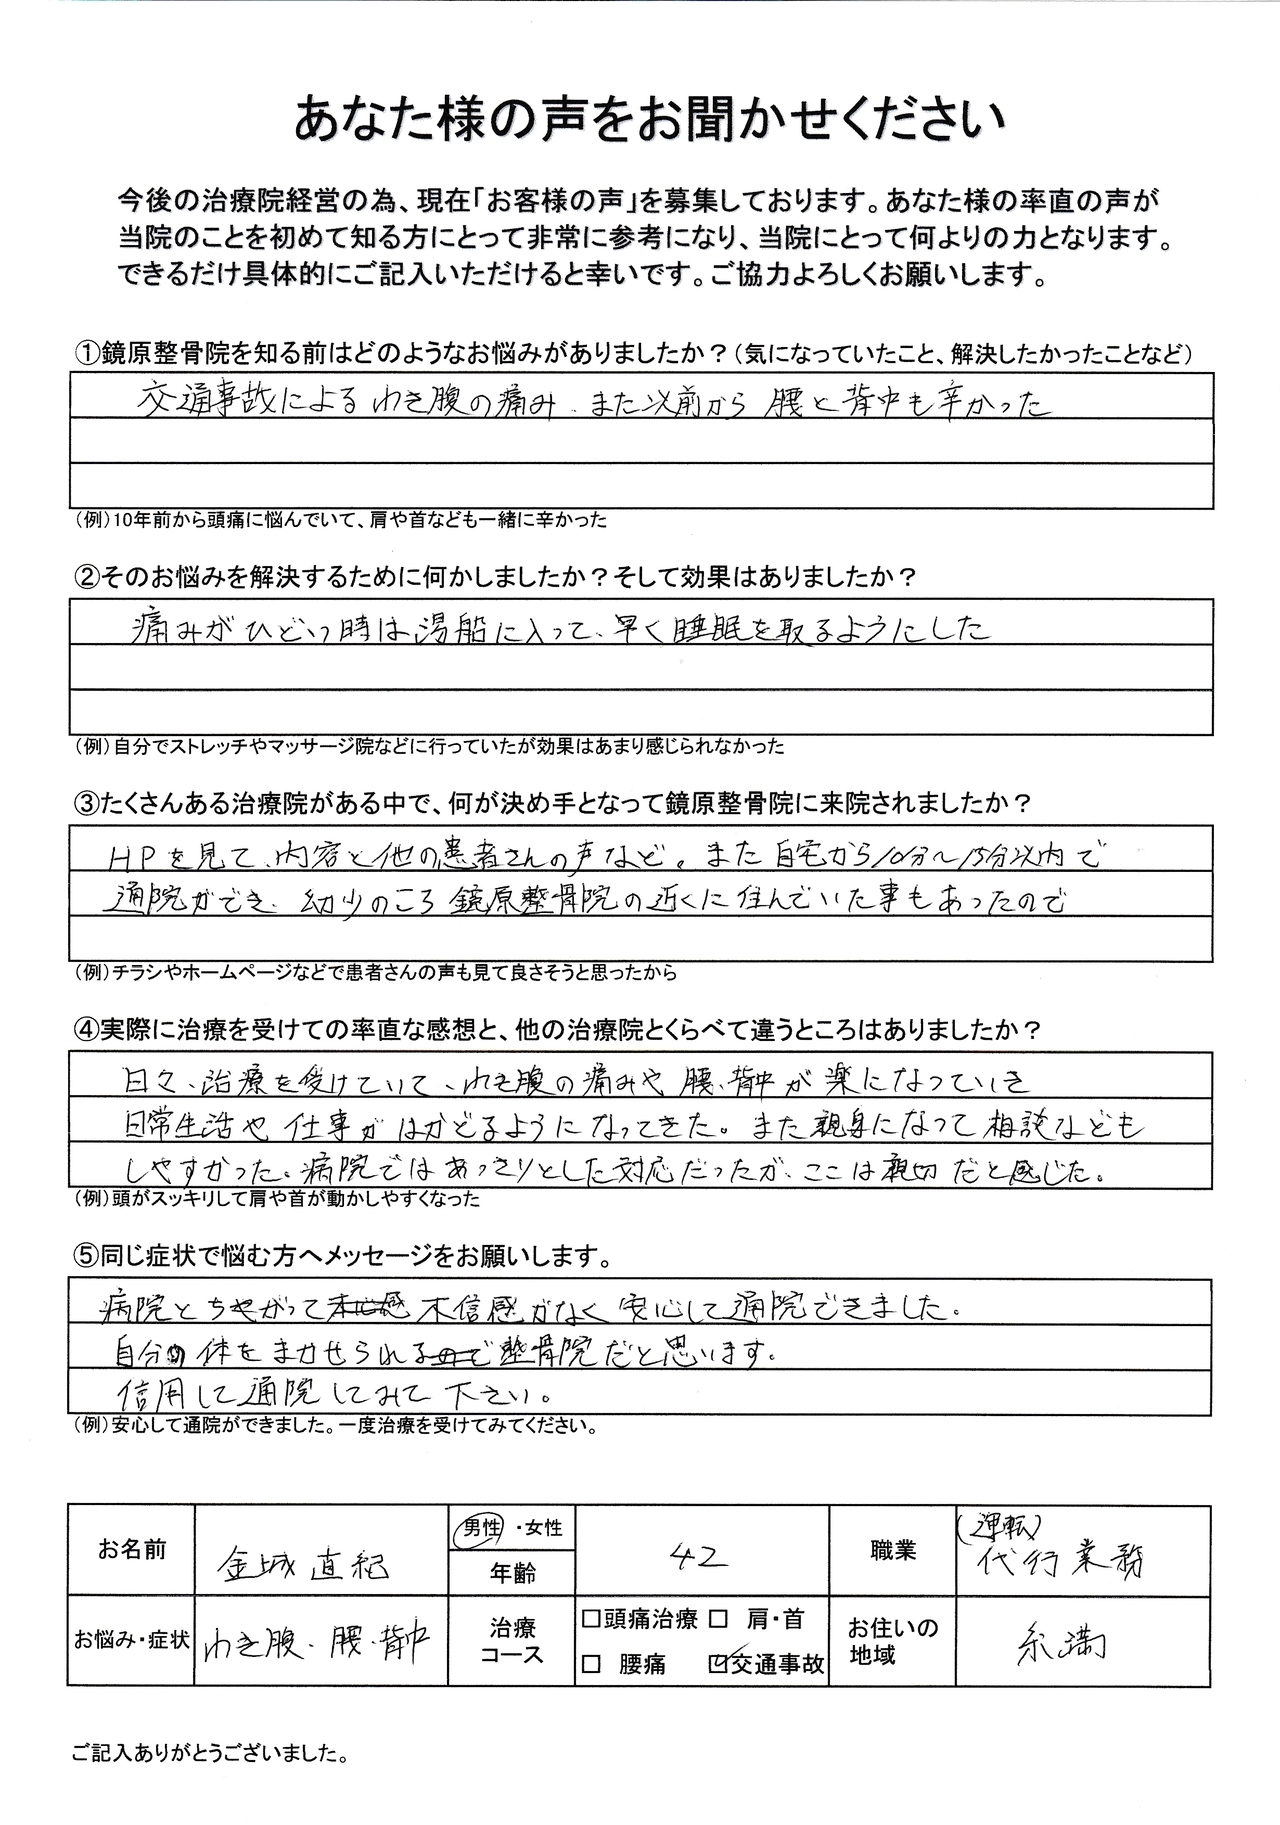 あなた様の声をお聞かせください
今後の治療院経営の為、現在「お客様の声」を募集しております。あなた様の率直の声が
当院のことを初めて知る方にとって非常に参考になり、当院にとって何よりの力となります。
できるだけ具体的にご記入いただけると幸いです。ご協力よろしくお願いします。
①鏡原整骨院を知る前はどのようなお悩みがありましたか？（気になっていたこと、解決したかったことなど）
交通事故によるわき腹の痛み、また以前から腰と背中も辛かった
（例）10年前から頭痛に悩んでいて、肩や首なども一緒に辛かった
②そのお悩みを解決するために何かしましたか？そして効果はありましたか？
痛みがひどい時は湯船に入って、早く睡眠を取るようにした
（例）自分でストレッチやマッサージ院などに行っていたが効果はあまり感じられなかった
③たくさんある治療院がある中で、何が決め手となって鏡原整骨院に来院されましたか？
HPを見て、内容と他の患者さんの声など。また自宅から10分～15分以内で
通院ができ、幼少のころ鏡原整骨院の近くに住んでいた事もあったので
（例）チラシやホームページなどで患者さんの声も見て良さそうと思ったから
④実際に治療を受けての率直な感想と、他の治療院とくらべて違うところはありましたか？
日々、治療を受けていて、わき腹の痛みや腰、背中が楽になっていき
日常生活や仕事がはかどるようになってきた。また親身になって相談なども
しやすかった。病院ではあっさりとした対応だったが、ここは親切だと感じた。
（例）頭がスッキリして肩や首が動かしやすくなった
⑤同じ症状で悩む方へメッセージをお願いします。
病院とちがって不信感がなく安心して通院できました。
自分の体をまかせられる整骨院だと思います。
信用して通院してみて下さい。
（例）安心して通院ができました。一度治療を受けてみてください。
お名前 金城直紀 男性・女性 年齢 42 職業 (運転)代行業務
お悩み・症状 わき腹・腰・背中 治療コース □頭痛治療 □ 肩・首 □ 腰痛 ☑交通事故 お住いの地域 糸満
ご記入ありがとうございました。